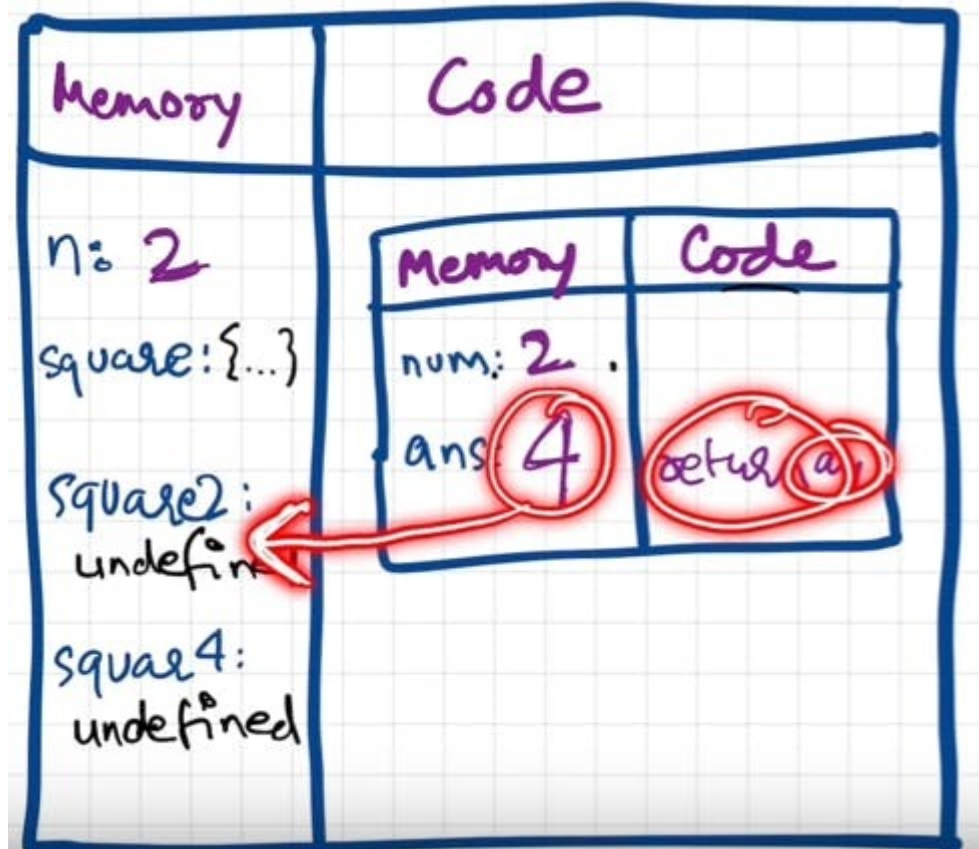 Memory
Code
n: 2
square: {...}
square2:
undefin
squar4:
undefined
Memory
Code
num: 2 .
ans 4
return